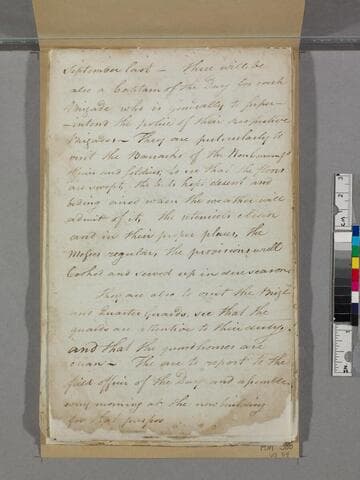 September last — There will be
also a Captain of the Day for each
Brigade who is generally to super-
-intend the police of their respective
Brigades — They are particularly to
visit the Barracks of the Noncommg
officers and soldiers, to see that the floors
are swept, the kept decent and
aired when the weather will
admit of it, the utensials clean
and in their proper places, the
Messes regular, the provisions well
Cooked and served up in due season
They are also to visit the Brigd
and Quarter guards, see that the
guards are attentive to their duty
and that the guardhouses are
clean — The are to report to the
field officer of the Day and assemble
every morning at the new building
for that purpos